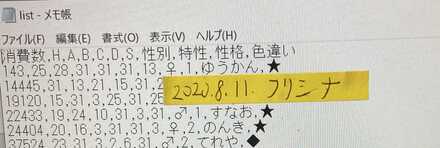 list - メモ帳
ファイル(F) 編集(E) 書式(O) 表示(V) ヘルプ(H)
消費数,H,A,B,C,D,S,性別,特性,性格,色違い
143,25,28,31,31,31,13,♀,1,ゆうかん,★
14445,31,13,21,15,31,2
19120,15,31,3,25,31,25
2020.8.11. フリシナ
22433,19,24,10,31,3,31,♂,1,すなお,★
24404,20,16,3,31,31,3,♀,2,のんき,★
37524,23,31,3,2,6,31,♂,2,てれや,◆